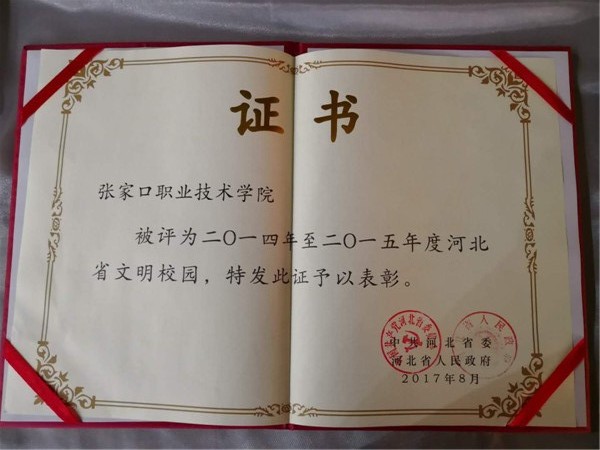 证书
张家口职业技术学院
被评为二〇一四年至二〇一五年度河北
省文明校园，特发此证予以表彰。
中共河北省委
河北省人民政府
2017年8月